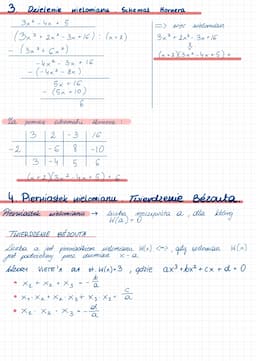 3. Dzielenie wielomianu Schemat Hornera
3x² - 4x + 5
(3x³ + 2x² - 3x + 16) : (x+2)
- (3x³ + 6x²)
-4x² - 3x + 16
- (-4x² - 8x)
5x + 16
- (5x + 10)
6
=> więc wielomian
3x³ + 2x² - 3x + 16
(x+2)(3x² - 4x + 5) +
Za pomocą schematu Hornera:
3 2 -3 16
-2 -6 8 -10
3 -4 5 6
(x+2)(3x² - 4x + 5) + 6
4. Pierwiastek wielomianu Twierdzenie Bézouta
Pierwiastek wielomianu → liczba rzeczywista a, dla której
W(a) = 0
TWIERDZENIE BÉZOUTA
Liczba a jest pierwiastkiem wielomianu W(x) <=>, gdy wielomian W(x)
jest podzielny przez dwumian x - a
WZORY VIETE'A DLA st. W(x)=3, gdzie ax³ + bx² + cx + d = 0
• x₁ + x₂ + x₃ = -b/a
• x₁·x₂ + x₂·x₃ + x₃·x₁ = c/a
• x₁ · x₂ · x₃ = -d/a